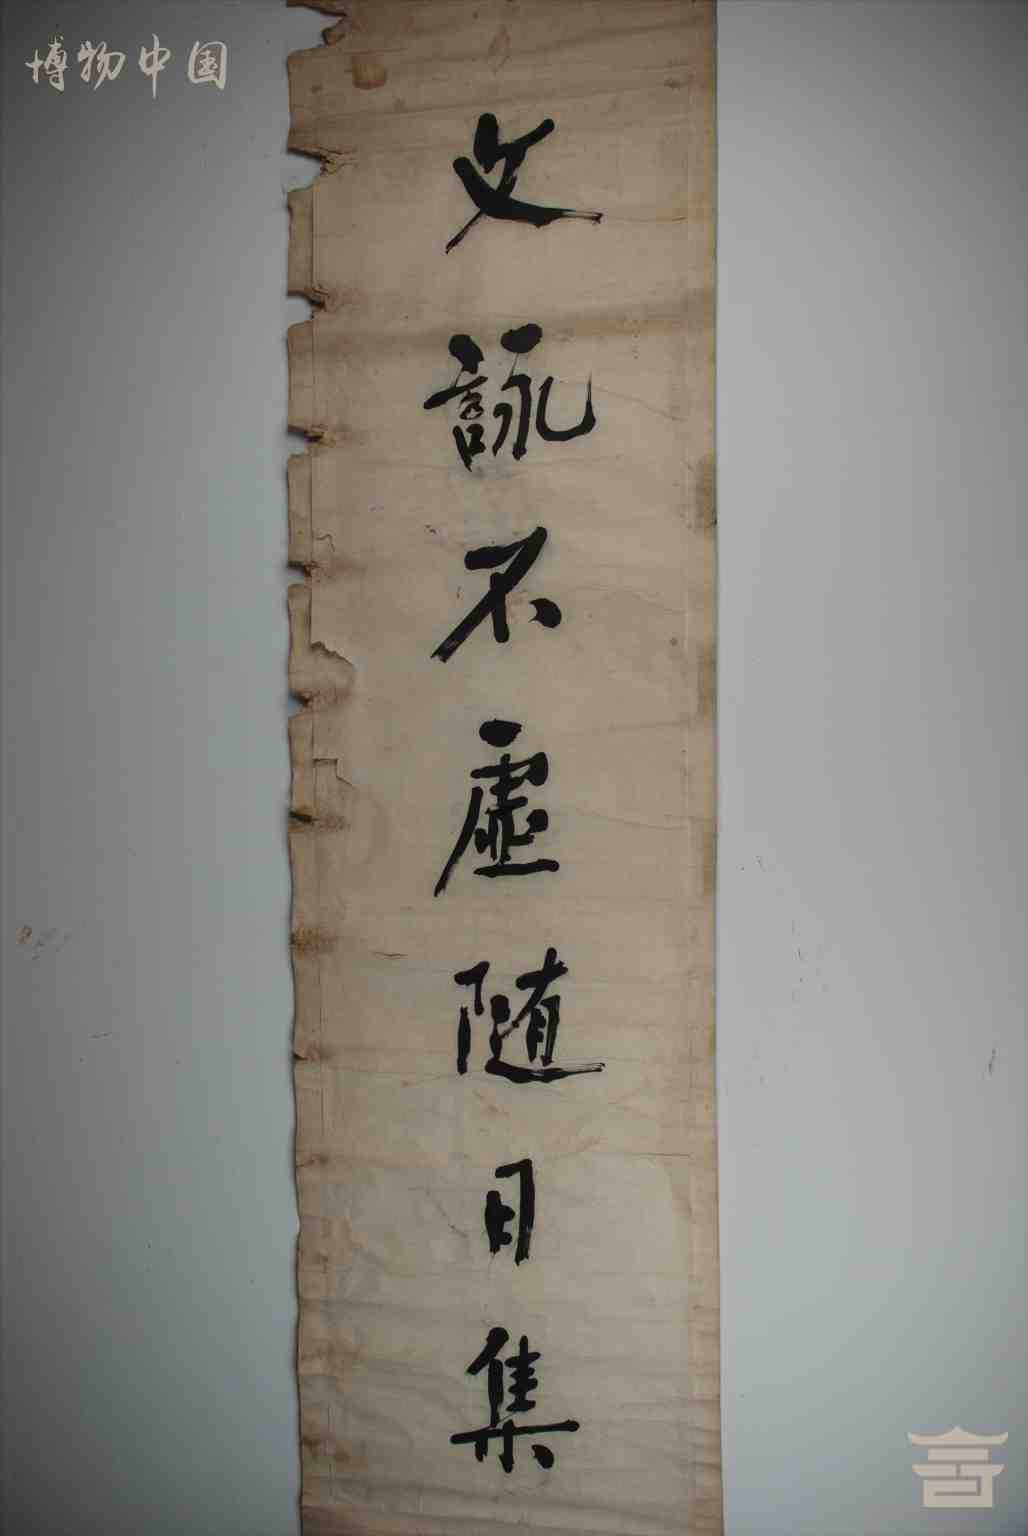 博物中国
文詠不虛随日集